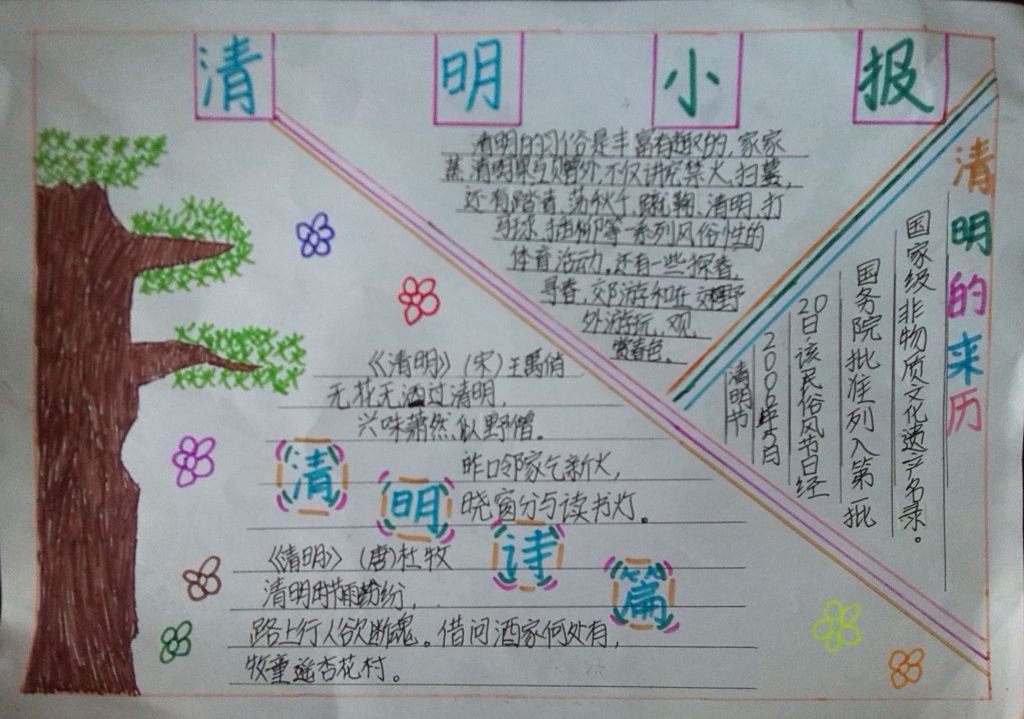 清明小报
清明的习俗是丰富有趣的,家家
蒸清明果互赠外,不仅讲究禁火、扫墓,
还有踏青、荡秋千、蹴鞠、清明、打
马球、插柳等一系列风俗性的
体育活动。还有一些探春,
寻春,郊游和在郊野
外游玩、观
赏春色。
清明的来历
清明节
2006年5月
20日,该民俗风节日经
国务院批准列入第一批
国家级非物质文化遗产名录。
《清明》(宋)王禹俏
无花无酒过清明,
兴味萧然似野僧。
昨日邻家乞新火,
晓窗分与读书灯。
清明诗篇
《清明》(唐)杜牧
清明时节雨纷纷,
路上行人欲断魂。借问酒家何处有,
牧童遥杏花村。